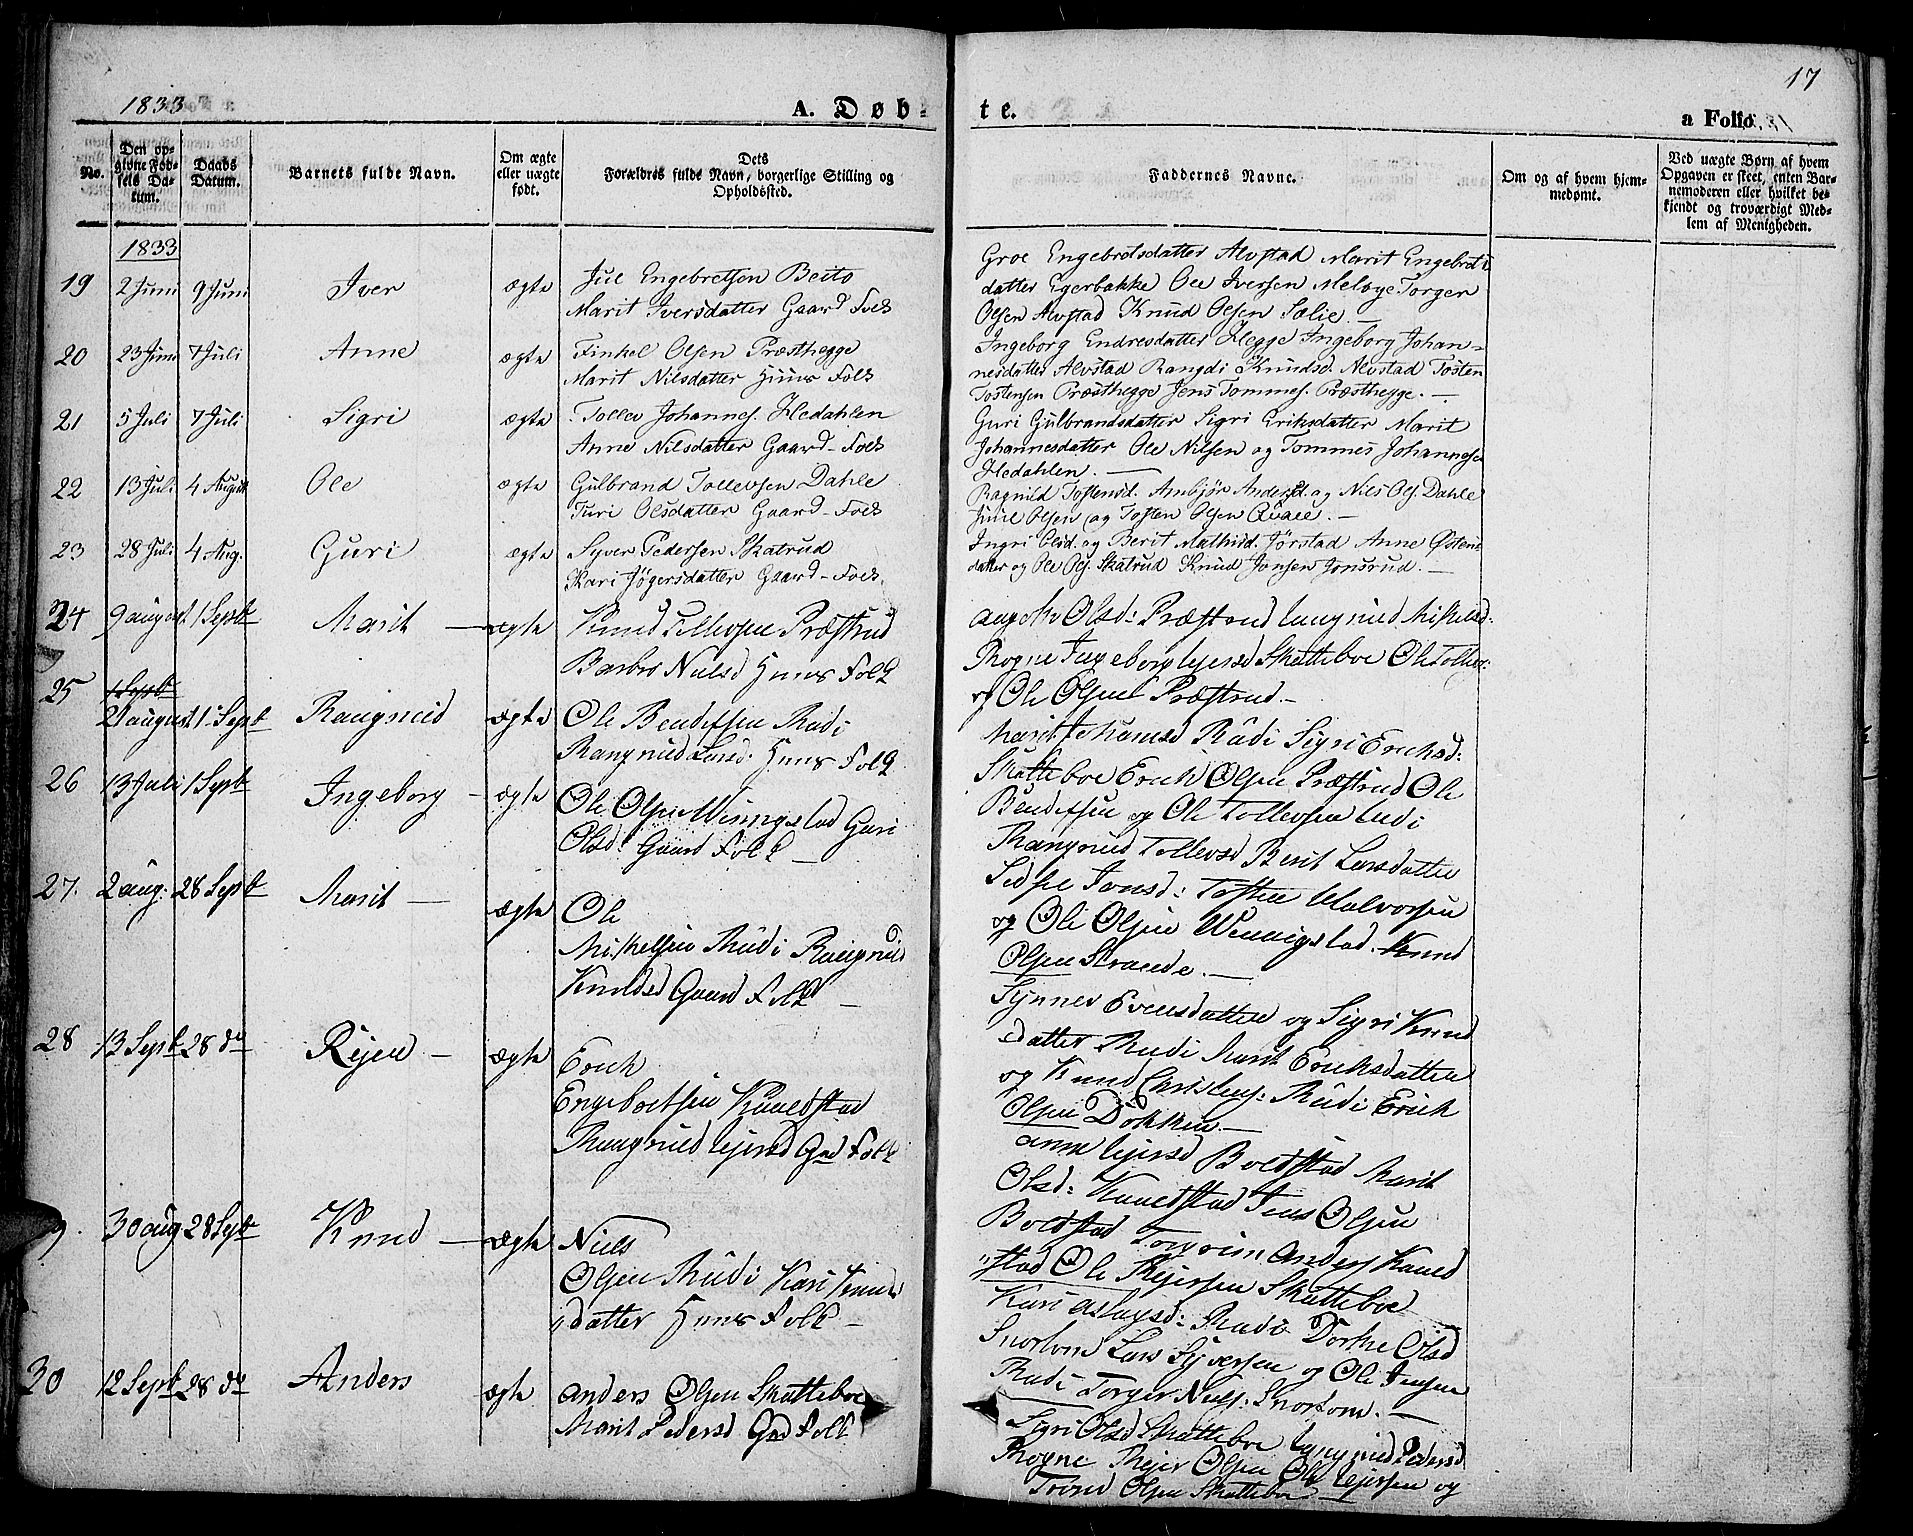 17
1833
A. Døb-
te.
a Folio
No.
Den op-
givne Fød-
sels Da-
tum.
Daabs
Datum.
Barnets fulde Navn.
Om ægte
eller uægte
født.
Dets
Forældres fulde Navn, borgerlige Stilling og
Opholdssted.
Faddernes Navne.
Om og af hvem hjem-
medømt.
Ved uægte Børn af hvem
Opgaven er skeet, enten Bar-
nemoderen eller hvilket be-
kjendt og troværdigt Med-
lem af Menigheden.
1833
19 2 Juni 9 Juni Iver ægte Jul Engebretsen Beito
Marit Iversdatter Gaard-Folk
Groe Engebretsdatter Alvstad Marit Engebrets
datter Egerbakke Ole Iversen Melbye Torger
Olsen Alvstad Knud Olsen Sælie. —
20 23 Juni 7 Juli Anne ægte Finkel Olsen Præsthegge
Marit Nilsdatter Huus Folk
Ingeborg Endresdatter Hegge Ingeborg Johan-
nesdatter Alvstad Rangdi Knudsd. Alvstad Tosten
Tostensen Præsthegge Jens Tommes. Præsthegge. —
21 5 Juli 7 Juli Sigri ægte Tollev Johannes. Hedahlen
Anne Nilsdatter Gaard-Folk
Guri Gulbrandsdatter Sigri Eriksdatter Marit
Johannesdatter Ole Nilsen og Tommes Johannese
Hedahlen. —
22 13 Juli 4 August Ole ægte Gulbrand Tollevsen Dahle
Turi Olsdatter Gaard-Folk
Ragnild Tostensd. Ambjør Andersd. og Nils Ols. Dahle
Juul Olsen og Tosten Olsen Qvale. —
23 28 Juli 4 Aug. Guri ægte Syver Pedersen Skatrud
Kari Jøgersdatter Gaard-Folk.
Ingri Olsd. og Berit Mathisd. Jørstad Anne Østens
datter og Ole Ols. Skatrud Knud Jonsen Jonsrud. —
24 9 august 1 Septb Marit — ægte Knud Tollevsen Præstrud
Barbro Nielsd Huus Folk
Olsd: Præstrud Mikkelsd:
Rogne Ingeborg Skatteboe Ole Tollevs:
og Ole Olsen Præstrud —
25 1 Septb
21 august 1: Septb Rangnild ægte Ole Bendixsen Rudi
Rangnild Larsd. Huus Folk
Marit Rudi Sigri Erichsd:
Skatteboe Erich Olsen Præstrud Ole
Bendixsen og Ole Tollevsen Rudi
26 13 Juli 1 Septb Ingeborg - ægte Ole Olsen Winingstad Guri
Olsd: Gaard Folk —
Rangnild Tollevsd Berit Larsdatter
Jonsd: Tosten Halvorsen
og Ole Olsen Wenningstad. Knud
Olsen Strande. —
27. 2 aug: 28 Septb Marit — ægte Ole
Mikkelsen Rudi Rangnild
Knudsd Gaard Folk —
Synnev Evensdatter og Sigri Knud
sdatter Rudi Marit Erichsdatter
og Knud Christens: Rudi Erich
Olsen Dokken —
28 13 Septb 28 do — ægte Erich
Engebretsen Kauldstad
Rangnild Gaard Folk
Anne Boldstad Marit
Olsd: Kauldstad Jens Olsen
Boldstad Torgrim Anders Kauld
stad Ole Skatteboe
9. 30 aug 28 Septb Knud — ægte Niels
Olsen Rudi Kari Knuds
datter Huus Folk —
Kari Aslagsd: Rudi Dorthe Olsd
Snortom Lars Syversen og Ole Jensen
Rudi Torger Niels: Snortom. —
30 12 Septb 28 do Anders ægte Anders Olsen Skatteboe
Marit Pedersd Gaard Folk
Sigri Olsd Skatteboe Pedersd
Rogne Olsen Ole og
Trond Olsen Skatteboe —